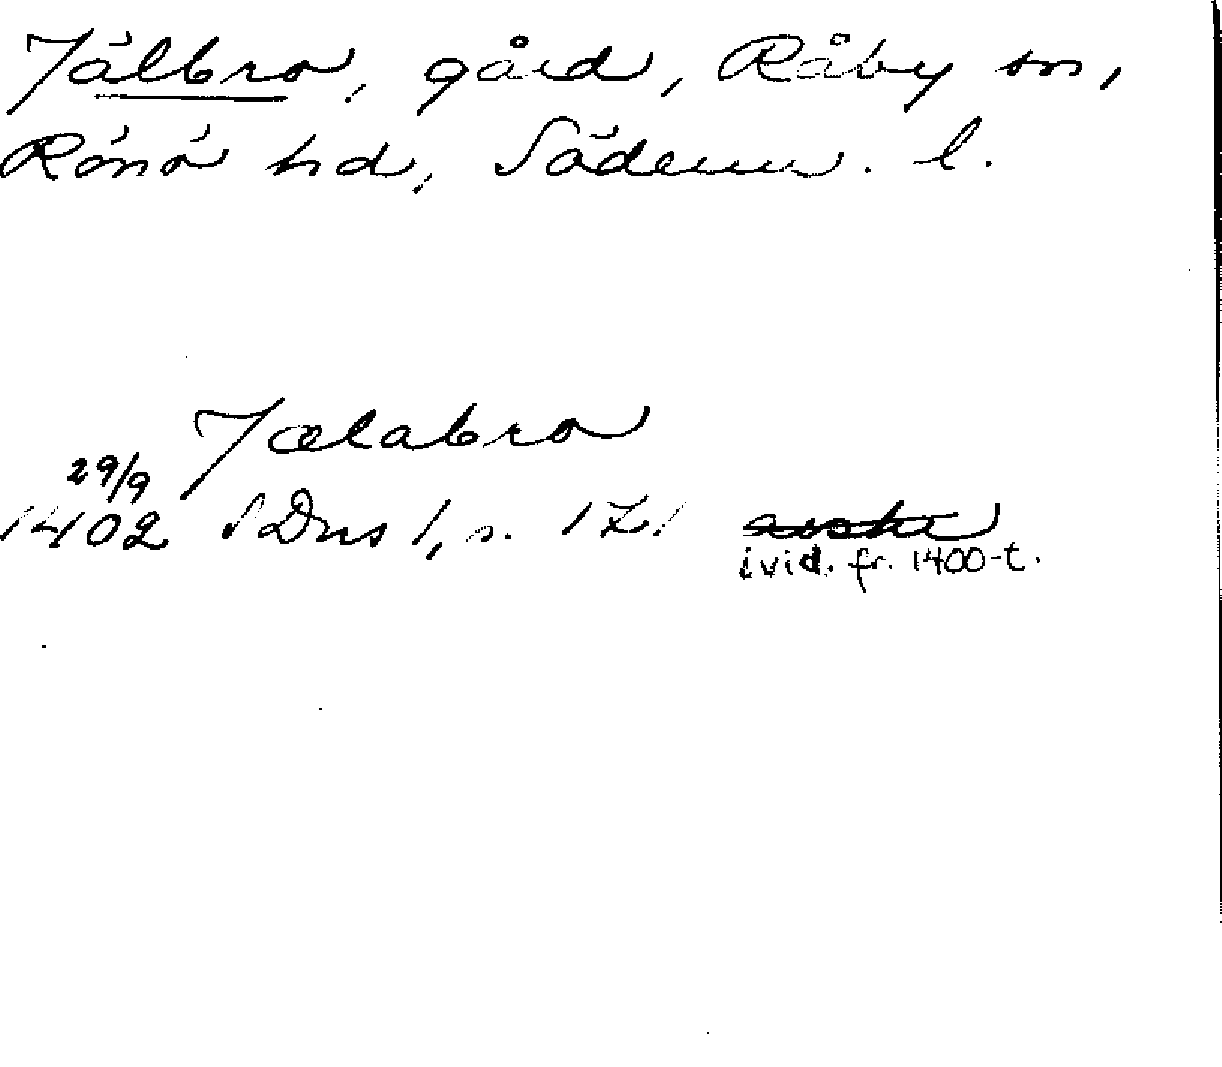 Jälbro, gård, Råby sn,
Rönö hd, Söderm. l.
Jælabro
29/9
1402 SDns 1, s. 171
ivid. fr. 1400-t.